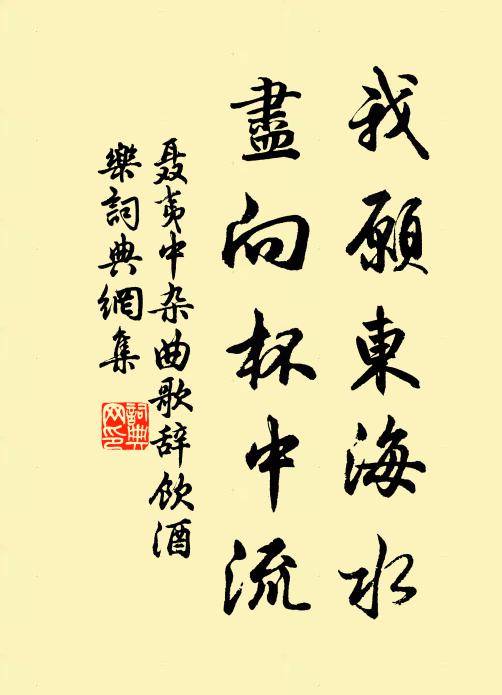 我願東海水
盡向杯中流
聂夷中杂曲歌辞饮酒
樂詞典網集
詞典
网印